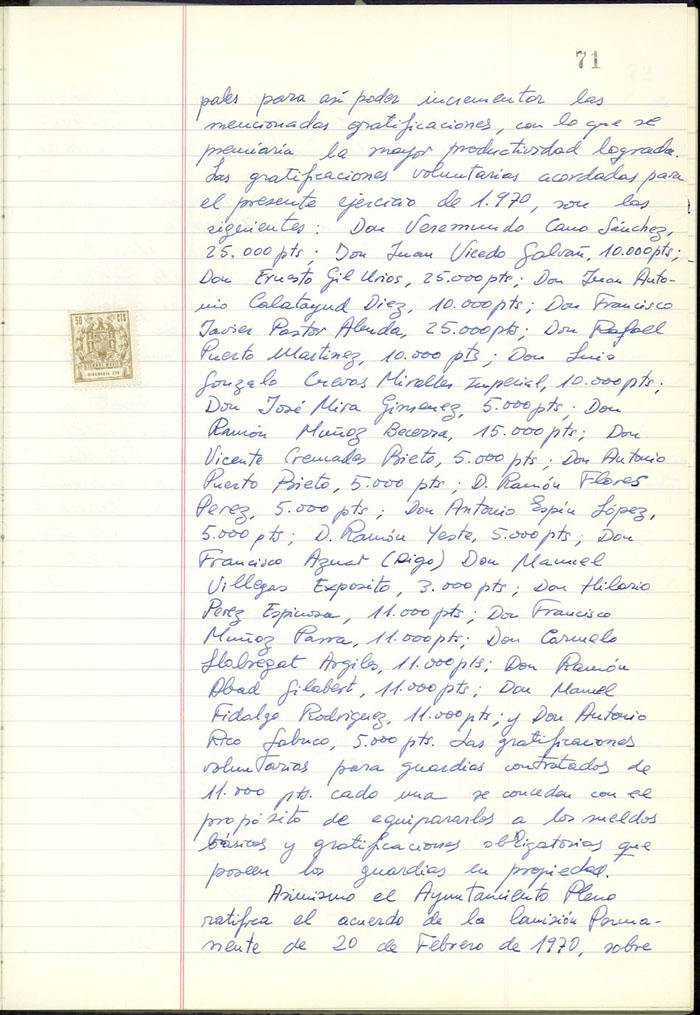 71
pales para así poder incrementar las
mencionadas gratificaciones, con lo que se
premiaría la mayor productividad lograda.
Las gratificaciones voluntarias acordadas para
el presente ejercicio de 1.970, son las
siguientes: Don Veremundo Cano Sánchez,
25.000 pts; Don Juan Vicedo Galvañ, 10.000 pts;
Don Ernesto Gil Urios, 25.000 pts; Don Juan Anto-
nio Calatayud Diez, 10.000 pts; Don Francisco
Javier Pastor Alenda, 25.000 pts; Don Rafael
Puerto Martinez, 10.000 pts; Don Luis
Gonzalo Cuevas Miralles Imperial, 10.000 pts;
Don José Mira Gimenez, 5.000 pts; Don
Ramón Muñoz Becerra, 15.000 pts; Don
Vicente Cremades Prieto, 5.000 pts; Don Antonio
Puerto Prieto, 5.000 pts; D. Ramón Flores
Perez, 5.000 pts; Don Antonio Espín López,
5.000 pts; D. Ramón Yeste, 5.000 pts; Don
Francisco Aznar (Digo) Don Manuel
Villegas Exposito, 3.000 pts; Don Hilario
Perez Espinosa, 11.000 pts; Don Francisco
Muñoz Parra, 11.000 pts; Don Carmelo
Llobregat Argiles, 11.000 pts; Don Ramón
Abad Gilabert, 11.000 pts; Don Manuel
Fidalgo Rodriguez, 11.000 pts; y Don Antonio
Rico 5.000 pts. Las gratificaciones
voluntarias para guardias contratados de
11.000 pts. cada una se conceden con el
propósito de equipararlos a los sueldos
básicos y gratificaciones obligatorias que
poseen los guardias en propiedad.
Asimismo el Ayuntamiento Pleno
ratifica el acuerdo de la Comisión Perma-
nente de 20 de Febrero de 1970, sobre
50 CTS